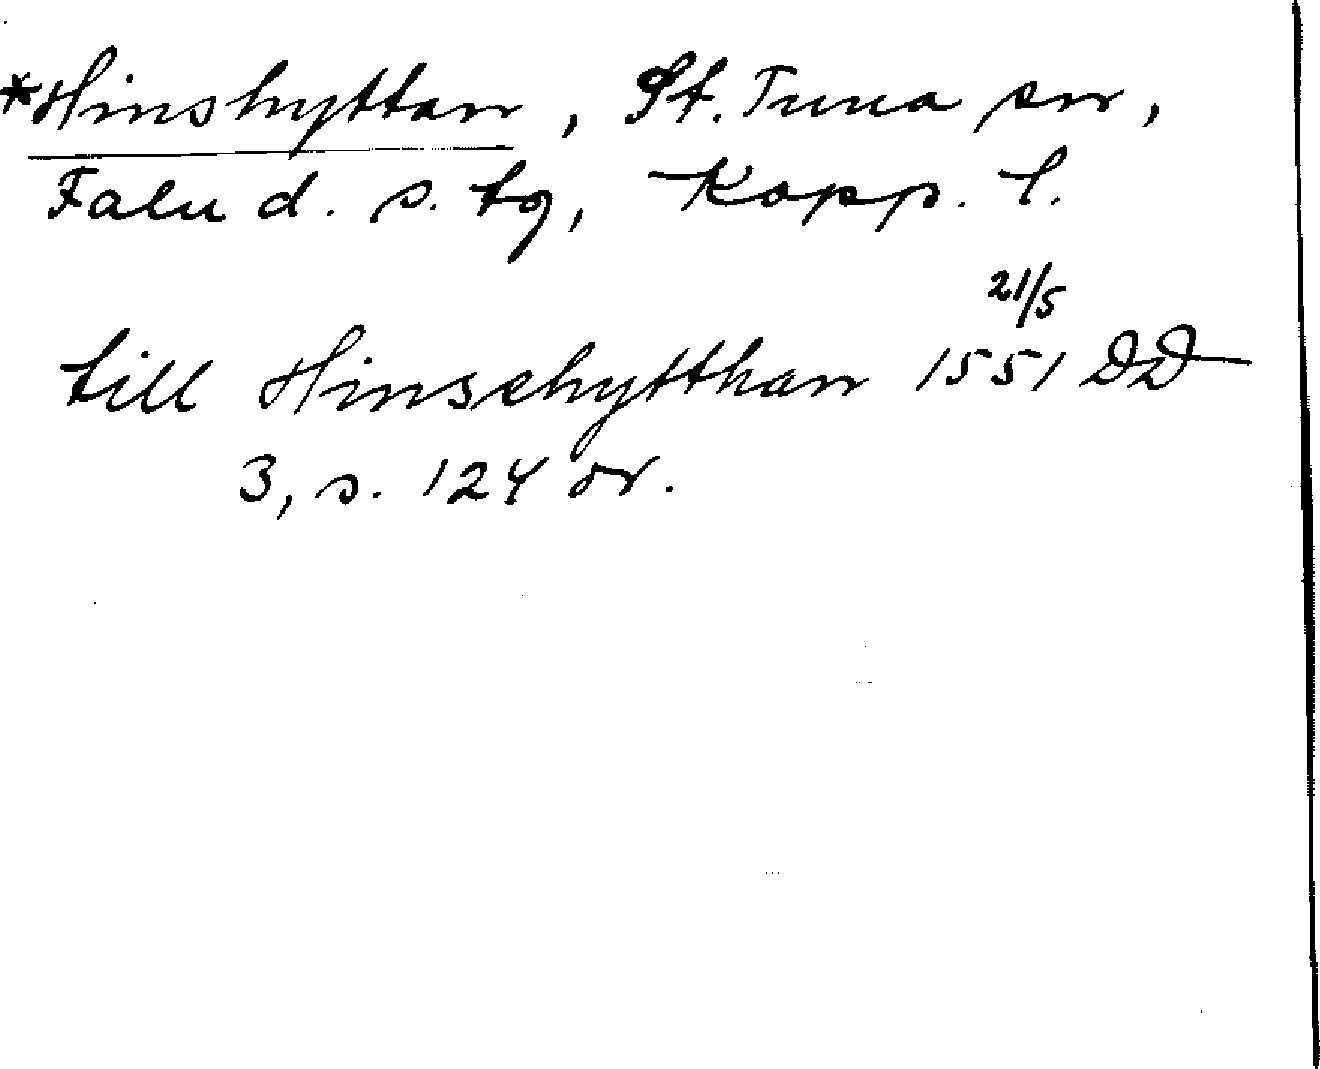 *Hinshyttan, St. Tuna sn,
Falu d. s. tg, Kopp. l.
till Hinsehytthan 1551 21/5 DD
3, s. 124 or.